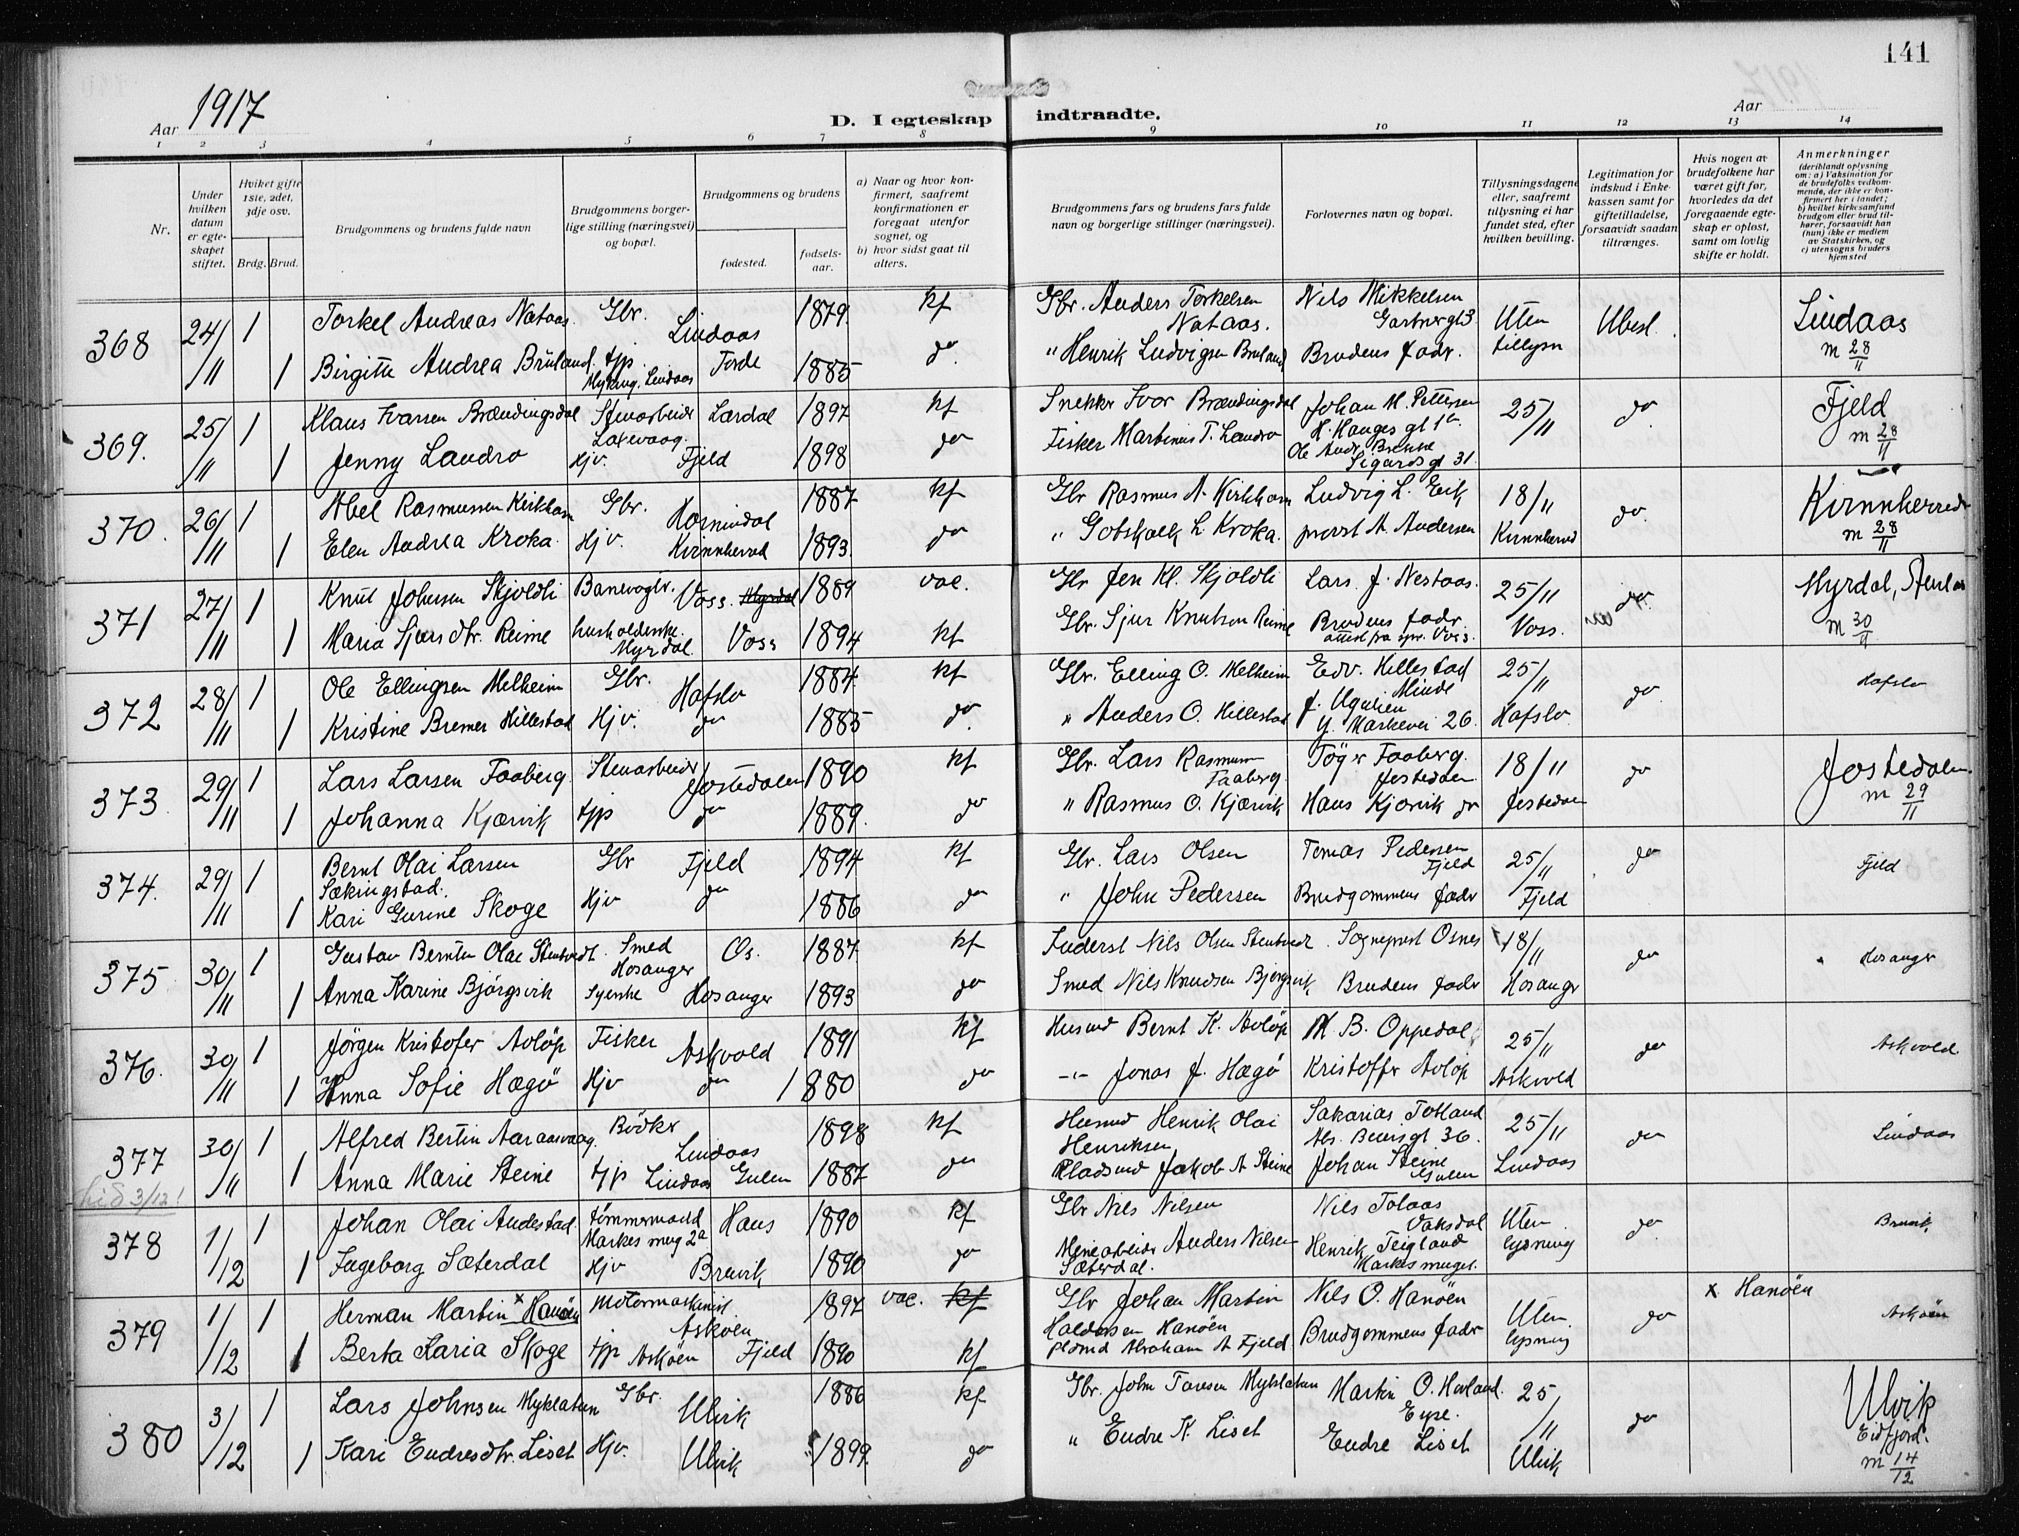 141
Aar 1917
D. I egteskap indtraadte.
Aar
1 2 3 4 5 6 7 8 9 10 11 12 13 14
Nr.
Under hvilken datum er egteskapet stiftet.
Hviket gifte 1ste, 2det, 3dje osv.
Brdg. Brud.
Brudgommens og brudens fulde navn
Brudgommens borgerlige stilling (næringsvei) og bopæl.
Brudgommens og brudens
fødested.
fødselsaar.
a) Naar og hvor konfirmert, saafremt konfirmationen er foregaat utenfor sognet, og
b) hvor sidst gaat til alters.
Brudgommens fars og brudens fars fulde navn og borgerlige stillinger (næringsvei).
Forlovernes navn og bopæl.
Tillysningsdagene eller, saafremt tillysning ei har fundet sted, efter hvilken bevilling.
Legitimation for indskud i Enkekassen samt for giftetilladelse, forsaavidt saadan tiltrænges.
Hvis nogen av brudefolkene har været gift før, hvorledes da det foregaaende egteskap er opløst, samt om lovlig skifte er holdt.
Anmerkninger (deriblandt oplysning om: a) Vaksination for de brudefolks vedkommende, der ikke er konfirmert her i landet; b) hvilket kirkesamfund brudgom eller brud tilhører, forsaavidt han (hun) ikke er medlem av Statskirken, og c) utensogns bruders hjemsted
368 24/11 1 Torkel Andreas Nataas Gbr. Lindaas 1879. kf Gbr. Anders Torkelsen Nataas. Nils Mikkelsen Gartnergt 3 Uten tillysn Ubesl. Lindaas m 28/11
1 Birgitte Andrea Bruland. tjp. Myking, Lindaas Førde 1885 do. " Henrik Ludvigsen Bruland Brudens fader.
369. 25/11 1 Klaus Ivarsen Brændingsdal Stenarbeider Laxevaag. Lærdal 1897 kf Snekker Ivor Brændingsdal Johan M. Pettersen H. Hauges gt 1 25/11 do. Fjeld m 28/11
1 Jenny Landro Hjv. Fjeld 1898 do Fisker Martinus T. Landro Ole Andr. Brekke Sigurds gt 31.
370. 26/11 1 Abel Rasmussen Kirkhorn Gbr. Hornindal 1887 kf Gbr Rasmus A. Kirkhorn Ludvig L. Eik 18/11 do. Kvinnherred m 28/11
1 Elen Andrea Kroka. Hjv. Kvinnherred 1893. do " Gotskalk L. Kroka. provst A. Andersen Kvinnherred
371 27/11 1 Knut Johnsen Skjoldli Banevogtr. Voss. Myrdal 1889 vac. Gbr Jen Kl. Skjoldli Lars J. Nestaas. 25/11 do. Myrdal, m 30/11
1 Maria Sjursdtr. Reime husholderske. Myrdal Voss 1894 kf Gbr. Sjur Knutson Reime Brudens fader attest fra spr. Voss. Voss.
372 28/11 1 Ole Ellingsen Melheim Gbr. Hafslo 1884. kf Gbr. Elling O. Melheim Edv. Hillestad Minde 25/11 do Hafslo
1 Kristine Bremer Hillestad Hjv. do 1885 do. " Anders O. Hillestad J. Ugulien Y. Markevei 26. Hafslo
373. 29/11 1 Lars Larsen Faaberg Stenarbeider Jostedalen 1890 kf Gbr. Lars Rasmussen Faaberg. Tøger Faaberg. Jostedalen 18/11 do Jostedalen m 29/11
1 Johanna Kjærvik tjp do 1889. do " Rasmus O. Kjærvik Hans Kjørvik do Jostedalen
374. 29/11 1 Bernt Olai Larsen Sækingstad. Gbr Fjeld 1894 kf Gbr. Lars Olsen Tomas Pedersen Fjeld 25/11 do Fjeld
1 Kari Gurine Skoge Hjv do 1886 do " John Pedersen Brudgommens fader Fjeld
375 30/11 1 Gustav Berntin Olai Stentvedt. Smed Hosanger Os. 1887 kf Inderst Nils Olsen Stentvedt. Sogneprest Osnes 18/11 do Hosanger
1 Anna Karine Bjørgsvik Syerske Hosanger 1893 do Smed Nils Knudsen Bjørgsvik Brudens fader Hosanger
376. 30/11 1 Jørgen Kristofer Avløp Fisker Askvold 1891 kf Husmd Bernt K. Avløp M. B. Oppedal 25/11 do Askvold.
1 Anna Sofie Hægø Hjv do 1880 do Jonas J. Hægø Kristoffer Avløp Askvold
377 30/11 1 Alfred Bertin Aaraasvaag. Bødker Lindaas 1898 kf Husmd Henrik Olai Henriksen Sakarias Totland Als. Beiersgt 36. 25/11 do Lindaas
hid 3/12! 1 Anna Marie Steine tjp Lindaas Gulen 1887 do Pladsmd Jakob A Steine Johan Steine Gulen Lindaas
378 1/12 1 Johan Olai Andestad. tømmermand Markes smug 2a Haus 1890 kf Gbr Nils Nilsen Nils Tolaas Vaksdal Uten lysning do. Bruvik
1 Ingeborg Sæterdal Hjv Bruvik 1890 do Minearbeider Anders Nilsen Sæterdal. Henrik Teigland Markes smuget.
379 1/12 1 Herman Martin × Hanøen Motormaskinist Askøen 1897 vac. kf Gbr Johan Martin Haldorsen Hanøen Nils O. Hanøen Uten lysning do × Hanøen Askøen
1 Berta Karia Skoge tjp Askøen Fjeld 1890 kf plsmd Abraham A Fjeld. Brudgommens fader
380 3/12 1 Lars Johnsen Myklatun Gbr. Ulvik 1886 kf Gbr. John Toresen Myklatun Martin O. Hovland. 25/11 do Ulvik Eidfjord. m 14/12
1 Kari Endresdtr. Liset Hjv. Ulvik 1899. do " Endre K. Liset Endre Liset Ulvik